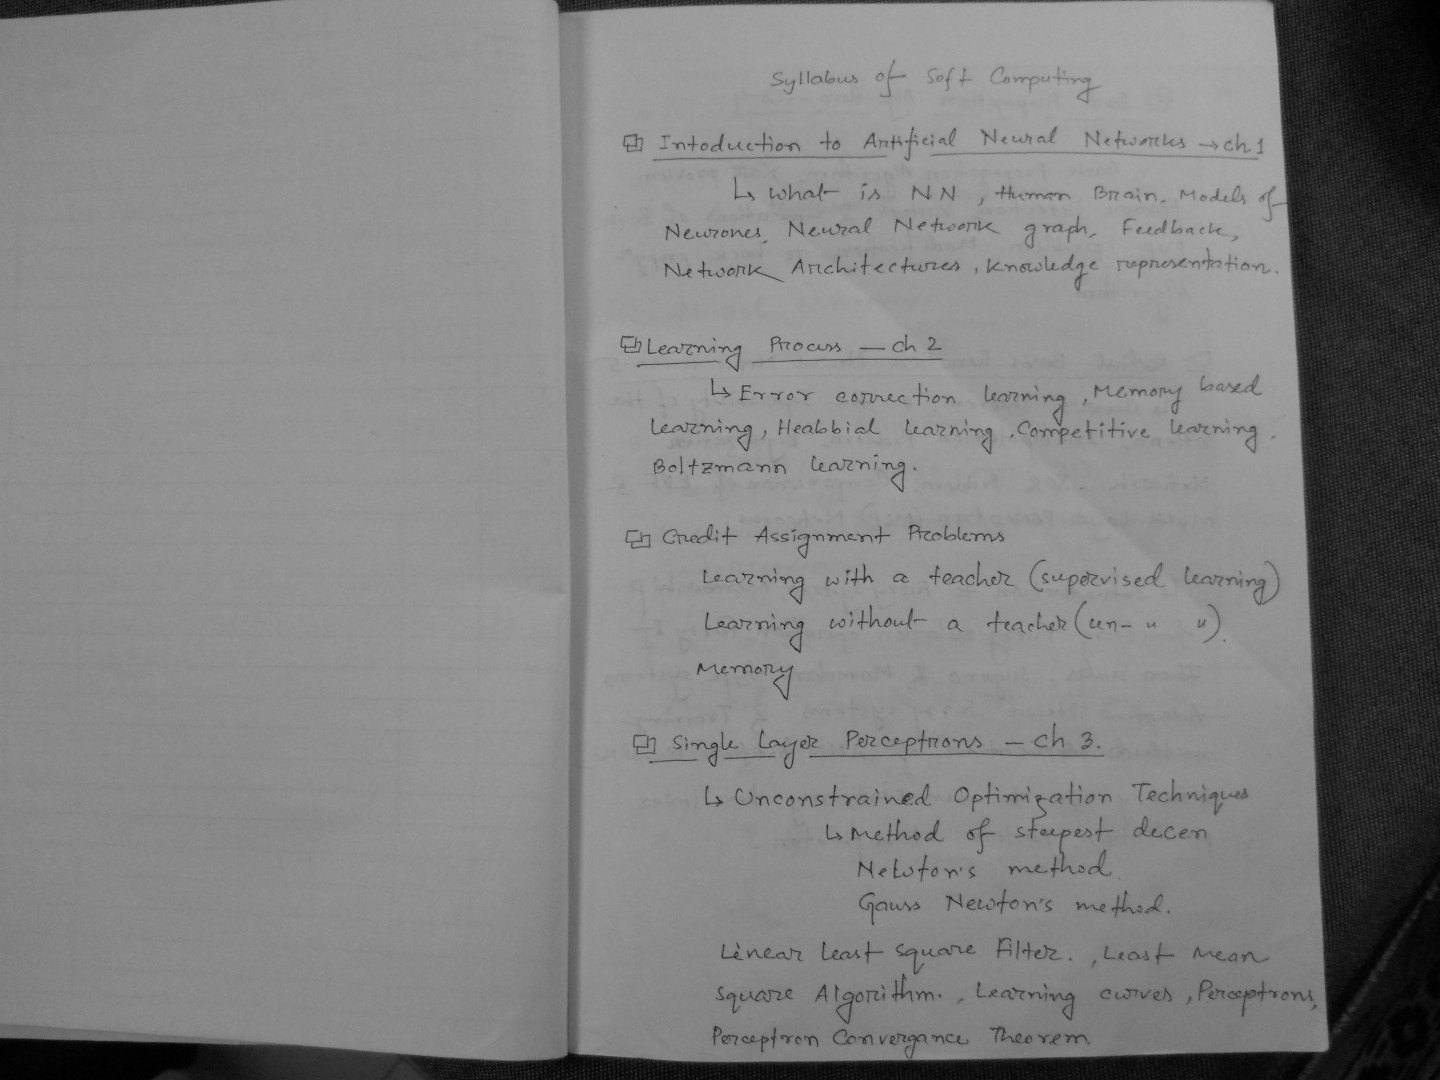 Syllabus of Soft Computing
Intoduction to Artificial Neural Networks → ch 1
↳ what is NN, Human Brain. Models of
Neurones, Neural Network graph, Feedback,
Network Architectures, knowledge representation.
Learning Process — ch 2
↳ Error correction learning, Memory based
learning, Heabbial learning, Competitive learning.
Boltzmann learning.
Credit Assignment Problems
Learning with a teacher (supervised learning)
Learning without a teacher (un- " ").
Memory
Single Layer Perceptrons — ch 3.
↳ Unconstrained Optimization Techniques
↳ Method of steepest decen
Newton's method.
Gauss Newton's method.
Linear least square Filter., Least Mean
square Algorithm., Learning curves, Perceptrons,
Perceptron Convergance Theorem